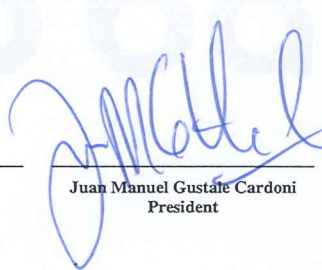 Juan Manuel Gustale Cardoni
President